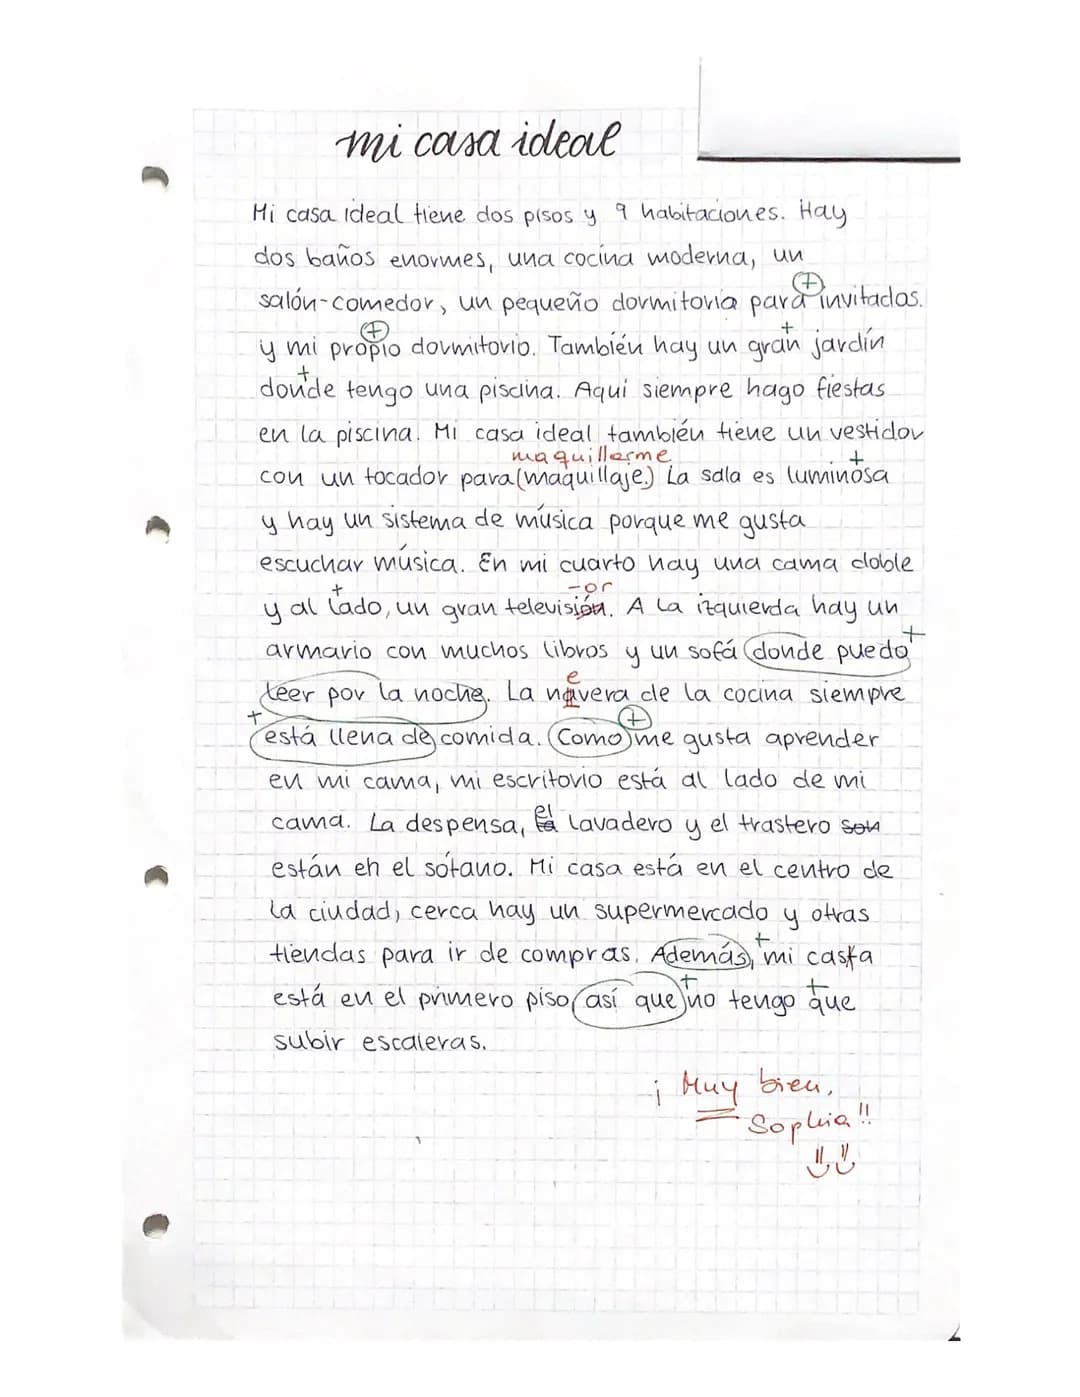 mi casa ideal
Mi casa ideal tiene dos pisos y 9 habitaciones. Hay
dos baños enormes, una cocina moderna, un
+
salón-comedor, un pequeño dormitorio para invitados.
+ +
y mi propio dormitorio. También hay un gran jardín
+
donde tengo una piscina. Aquí siempre hago fiestas
en la piscina. Mi casa ideal también tiene un vestidor
maquillarme +
con un tocador para (maquillaje.) La sala es luminosa
y hay un sistema de música porque me gusta
escuchar música. En mi cuarto hay una cama doble
+ -or
y al lado, un gran televisión. A la izquierda hay un
+
armario con muchos libros y un sofá donde puedo
e
leer por la noche. La navera de la cocina siempre
+ +
está llena de comida. Como me gusta aprender
en mi cama, mi escritorio está al lado de mi
el
cama. La despensa, la lavadero y el trastero son
están en el sótano. Mi casa está en el centro de
la ciudad, cerca hay un supermercado y otras
+
tiendas para ir de compras. Además, mi casa
+ +
está en el primero piso así que no tengo que
subir escaleras.
¡Muy bien,
Sophia!!